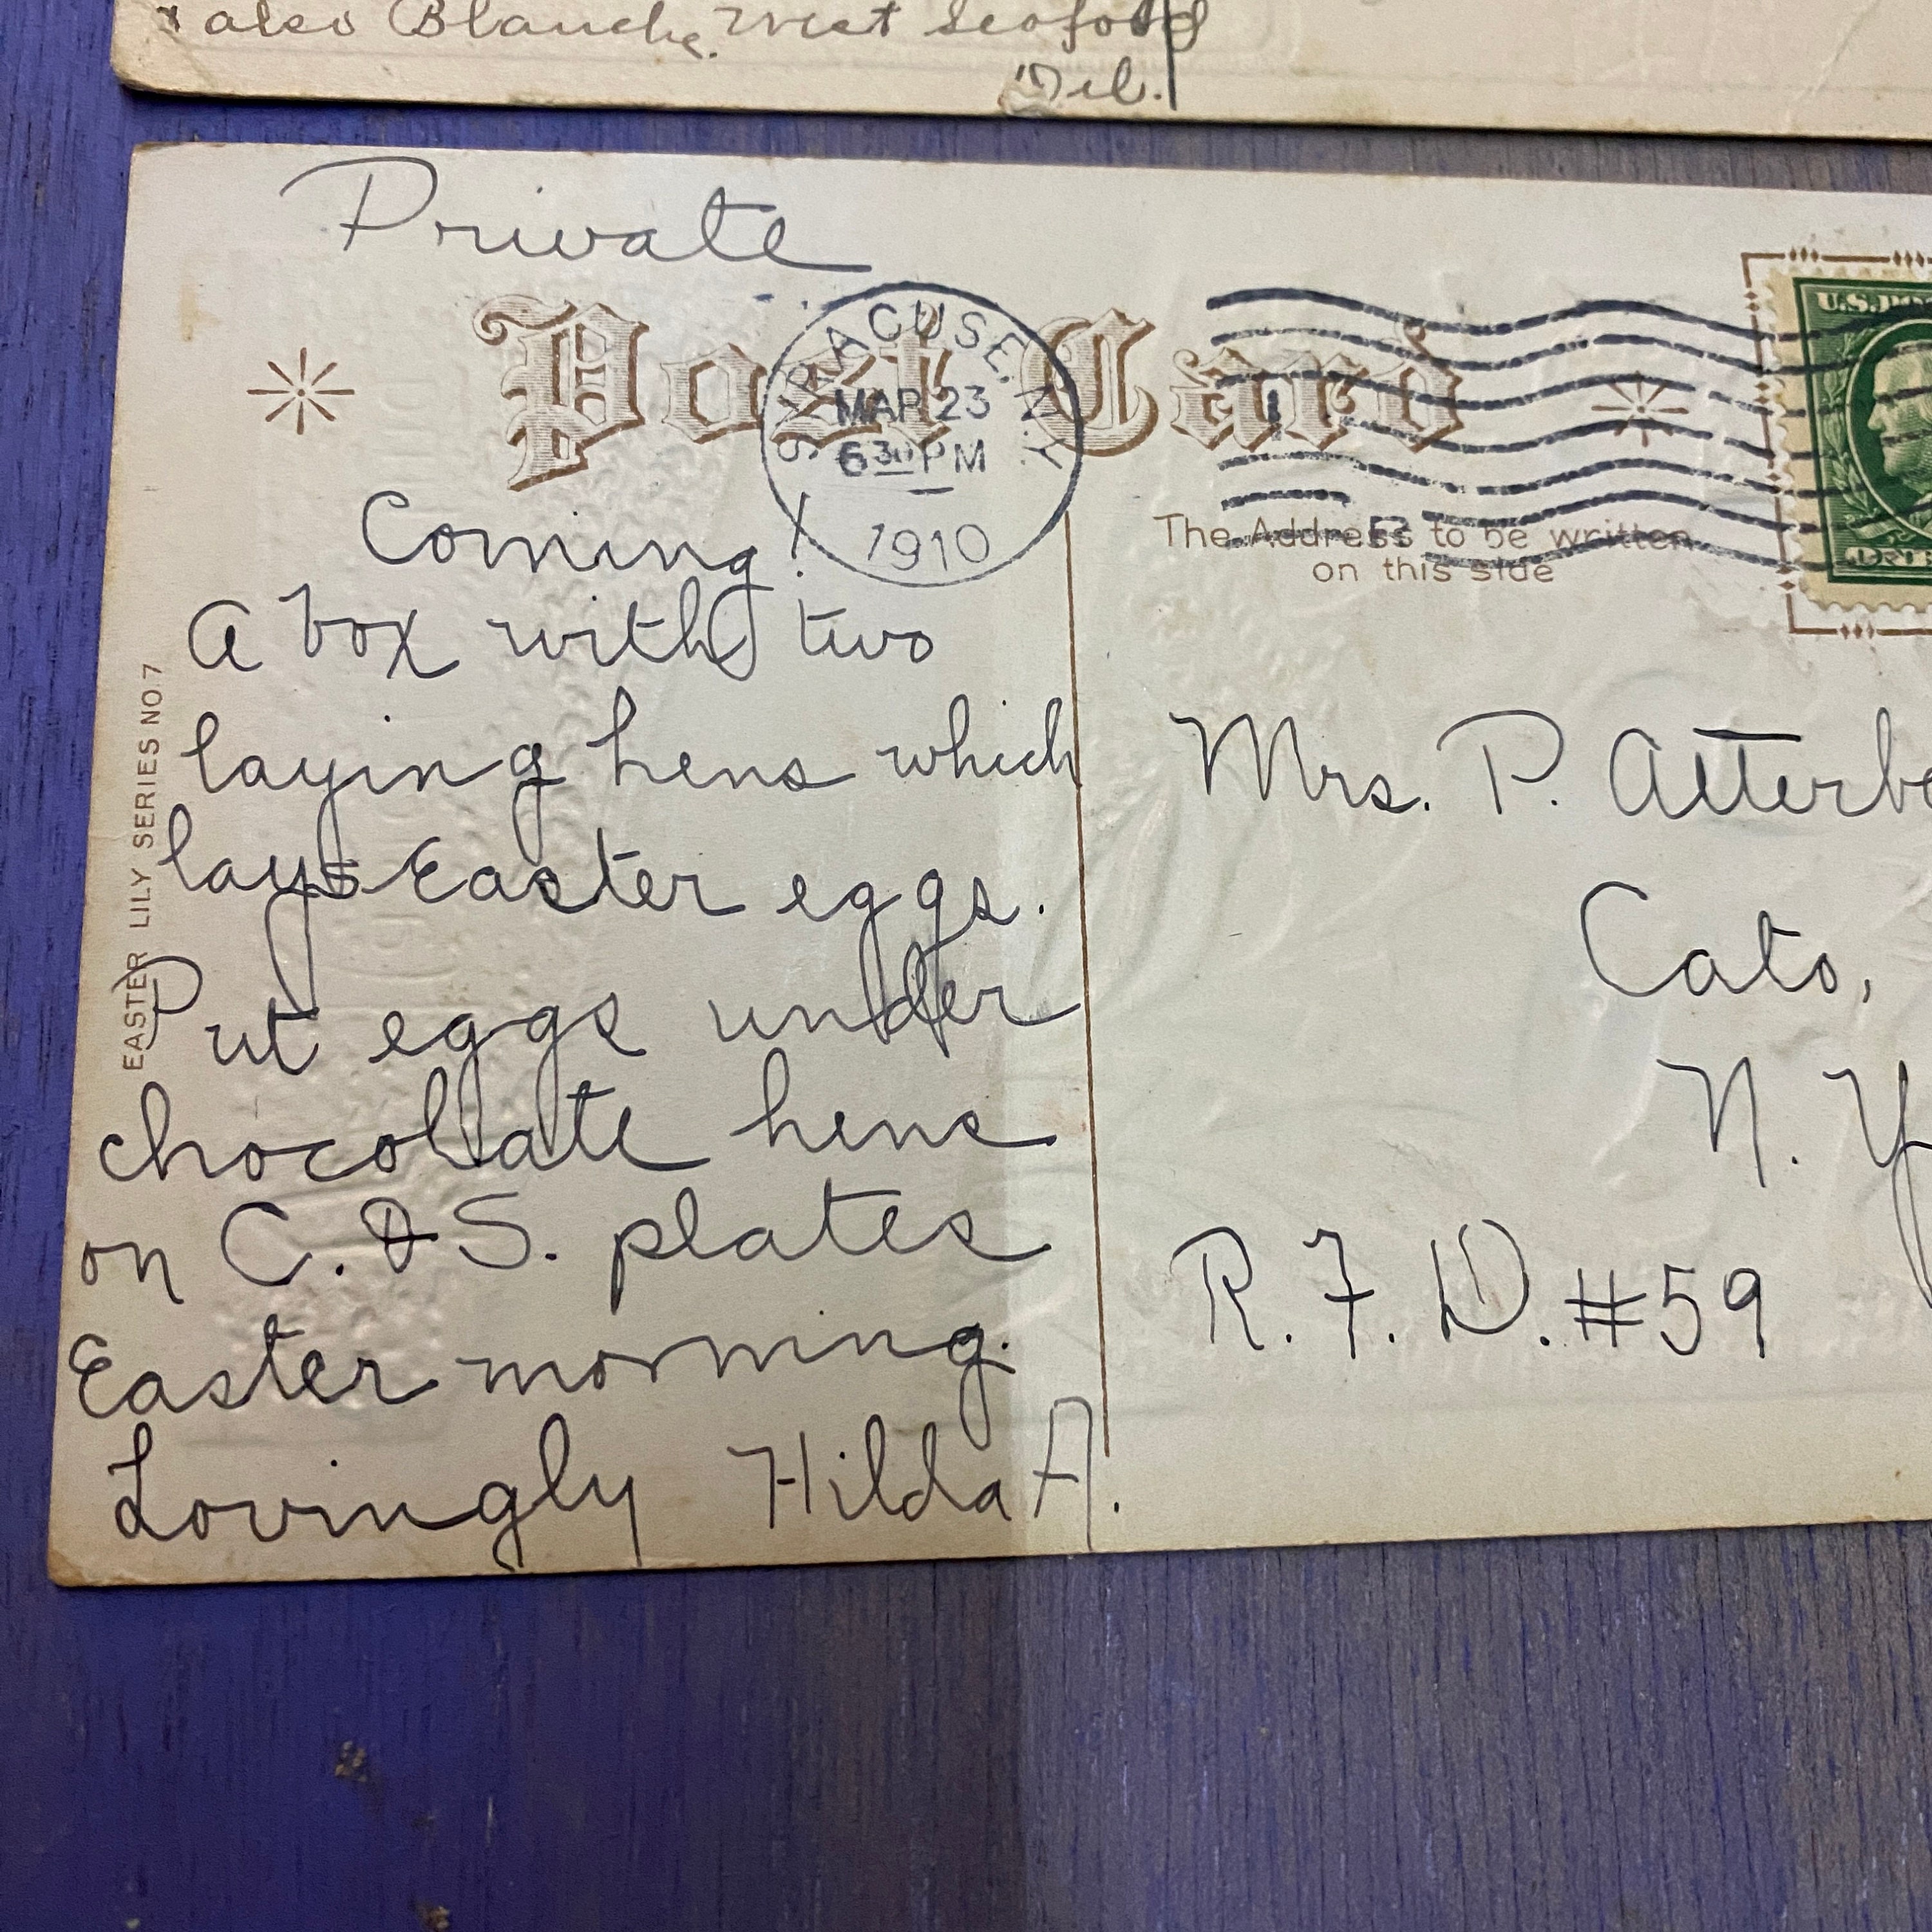 also Blanche. West Seaford
Del.
Private
Post Card
SYRACUSE, N.Y.
MAR 23
630 PM
1910
U.S. PO
The Address to be written
on this side
Coming!
A box with two
laying hens which
lays Easter eggs.
Put eggs under
chocolate hens
on C. & S. plates
Easter morning.
Lovingly Hilda A.
Mrs. P. Atterb
Cato,
N. Y
R. F. D. #59
EASTER LILY SERIES NO. 7